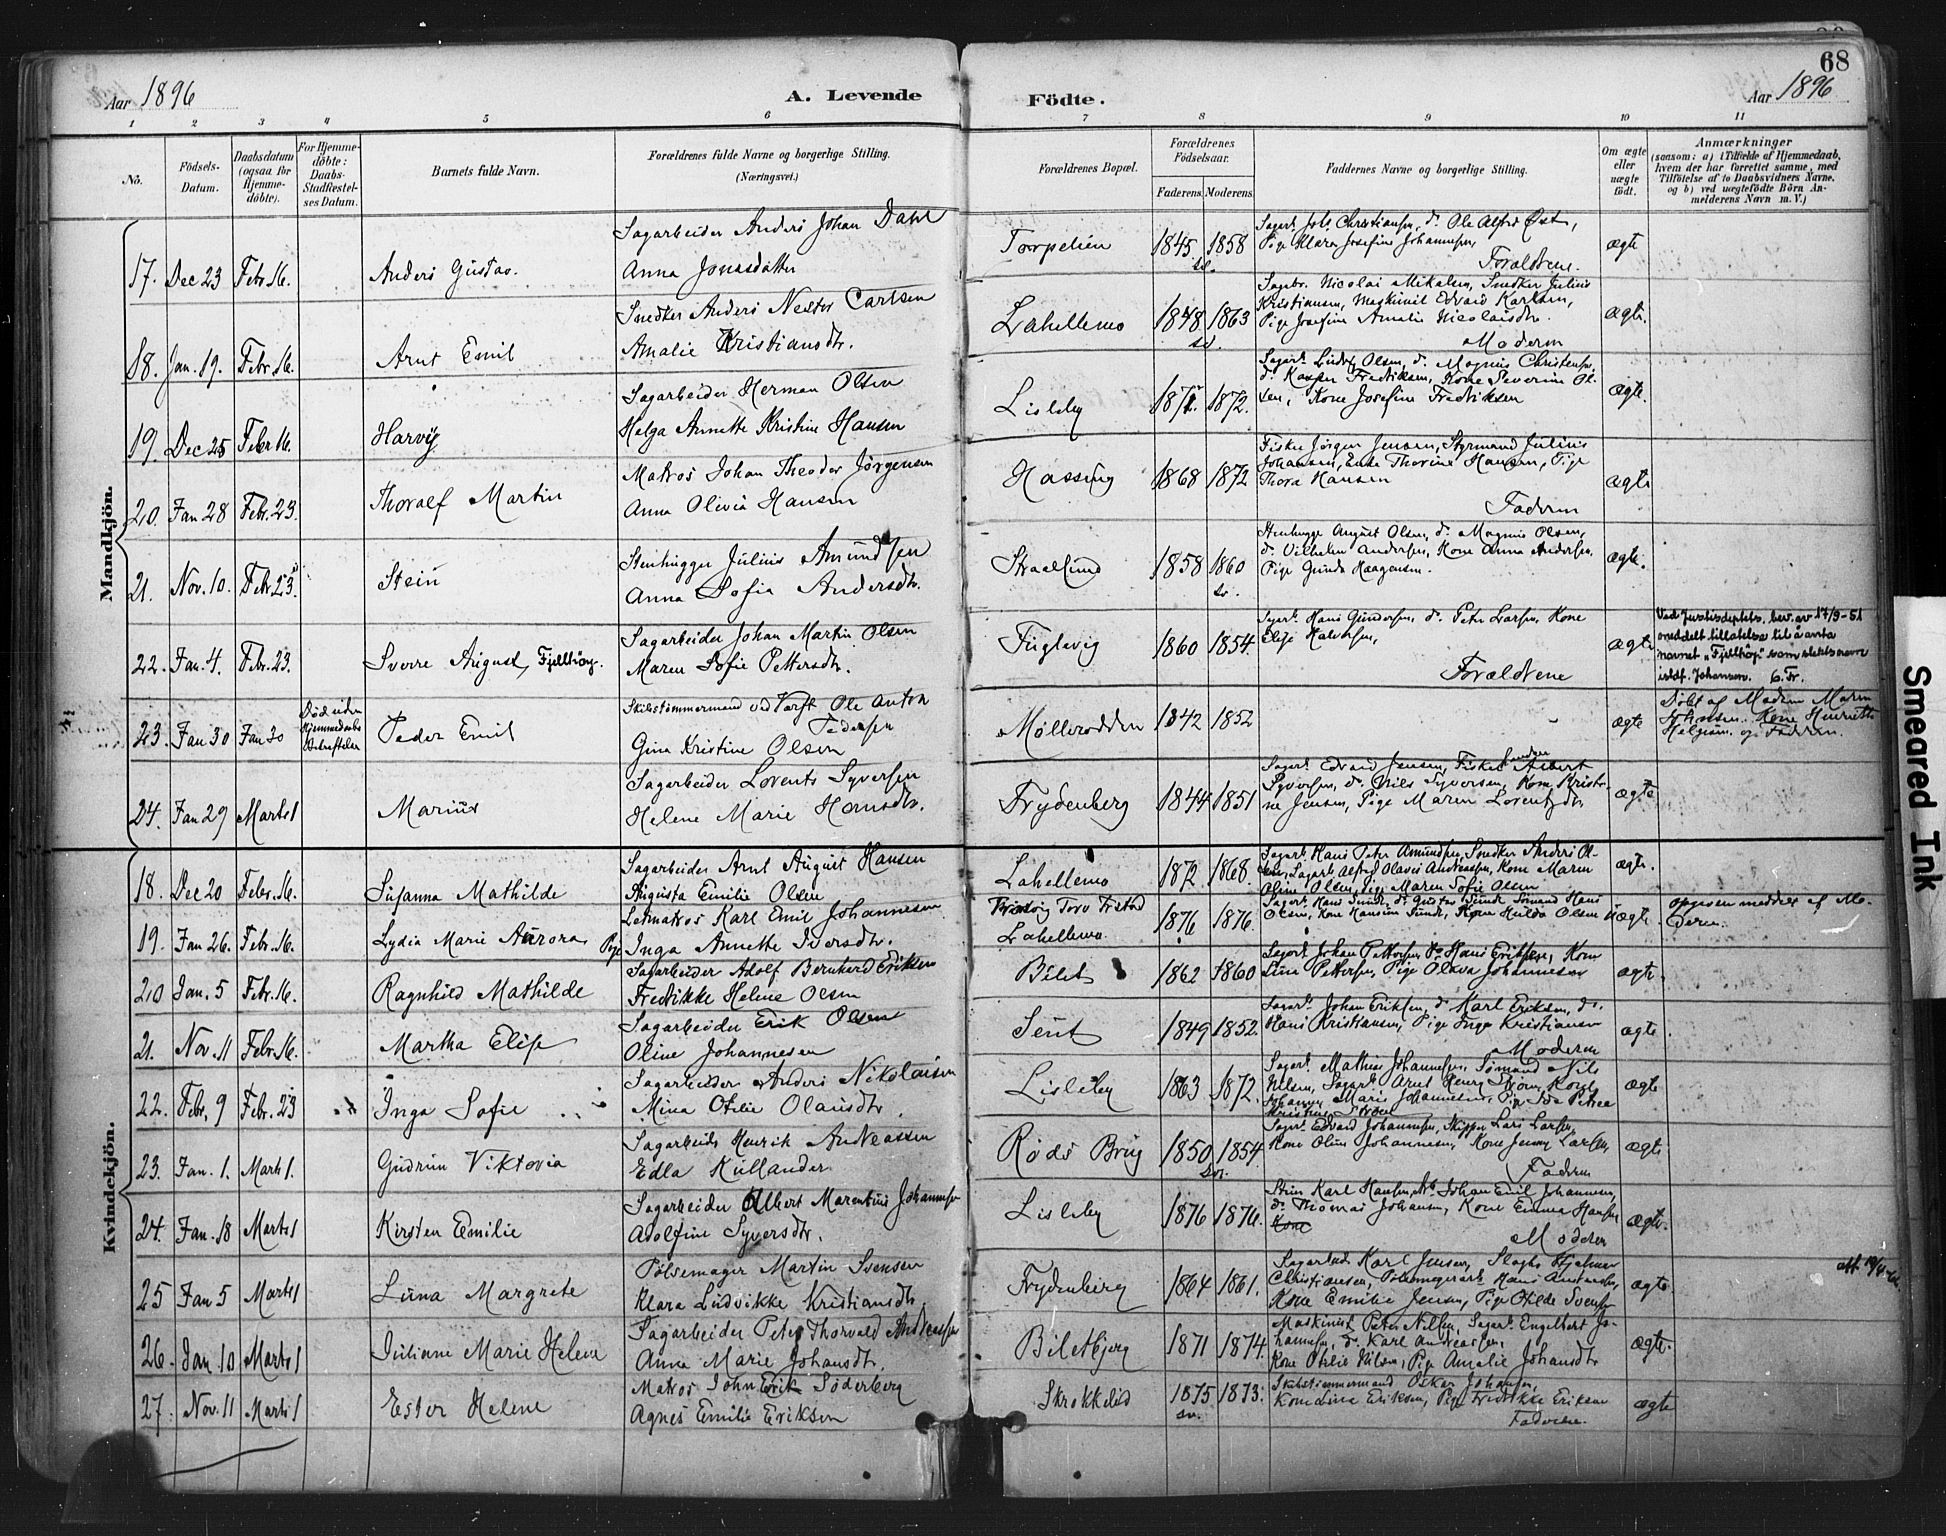 68
Aar 1896
A. Levende Födte.
Aar 1896
1 2 3 4 5 6 7 8 9 10 11
No.
Födsels-Datum.
Daabsdatum (ogsaa for Hjemme-döbte).
For Hjemme-döbte: Daabs-Stadfæstel-ses Datum.
Barnets fulde Navn.
Forældrenes fulde Navne og borgerlige Stilling. (Næringsvei.)
Forældrenes Bopæl.
Forældrenes Födselsaar.
Faderens. Moderens.
Faddernes Navne og borgerlige Stilling.
Om ægte eller uægte födt.
Anmærkninger
(saasom: a) i Tilfælde af Hjemmedaab, hvem der har forrettet samme, med Tilföielse af to Daabsvidners Navne, og b) ved uægtefödte Börn An-melderens Navn m. V.)
Mandkjön.
17. Dec 23 Febr. 16. Anders Gustav.
Sagarbeider Anders Johan Dahl
Anna Jonasdatter
Torpelien 1845 1858
Sagarb. Joh. Christiansen, do. Ole Alfred Øst,
Pige Klara Josefine Johannesen,
Forældrene.
ægte
18. Jan. 19. Febr. 16. Arnt Emil
Snedker Anders Nestor Carlsen
Amalie Kristiansdtr.
Lahellemo 1848 1863
sv.
Sagbr. Nicolai Mikalsen, Snedker Julius
Kristiansen, Maskinist Edvard Karlsen,
Pige Josefine Amalie Nicolaisdtr.
Moderen
ægte.
19. Dec 25 Febr 16. Harvig
Sagarbeider Herman Olsen
Helga Annette Kristine Hansen
Lisleby 1871. 1872.
Sagarb. Ludvig Olsen, do. Magnus Christensen,
do. Kasper Fredriksen, Kone Severine Ol-
sen, Kone Josefine Fredriksen
ægte.
20. Jan 28 Febr. 23. Thoralf Martin
Matros Johan Theodor Jörgensen
Anna Olivia Hansen
Hassing 1868 1872
Fisker Jörgen Jensen, Styrmand Julius
Johansen, Enke Thorine Hansen, Pige
Thora Hansen
Faderen
ægte
21. Nov. 10. Febr. 23. Stein
Stenhugger Julius Amundsen
Anna Sofia Andersdtr.
Straalsund 1858 1860
sv.
Stenhugge August Olsen, do. Magnus Olsen,
do. Vilhelm Andersen, Kone Anna Andersen,
Pige Gunda Haagensen.
ægte.
22. Jan. 4. Febr. 23. Sverre August, Fjellhöy.
Sagarbeider Johan Martin Olsen
Maren Sofie Pettersdtr.
Fuglevig 1860 1854.
Sagarb. Hans Gundersen, do. Peter Larsen, Kone
Elise Halvorsen,
Forældrene
ægte
Ved Justisdeptets. bev. av 17/9-51
meddelt tillatelse til å anta
navnet "Fjellhöy" som slektsnavn
istdf. Johansen. G. Fr.
23. Jan 30 Jan 30 Död uden Hjemmedaabs Bekræftelse Peder Emil
Skibstömmermand ved Værft Ole Anton
Pedersen
Gina Kristine Olsen
Mölleroddn 1842 1852
ægte
Döbt af Maden Maren
Johnsen. Kone Henriette
Helgesen. og Faderen.
24. Jan 29 Marts 1 Marius
Sagarbeider Lorents Syversen
Helene Marie Hansdtr.
Frydenberg 1844 1851
Sagarb. Edvard Jensen, Fisker Albert
Syversen, do. Nils Syversen, Kone Kristi-
ne Jensen, Pige Maren Lorentzdtr
ægte
Kvindekjön.
18. Dec 20 Febr. 16. Susanna Mathilde
Sagarbeider Arnt August Hansen
Augusta Emilie Olsen
Lahellemo 1872 1868.
Sagarb. Hans Peter Amundsen, Snedker Anders Ol-
sen, Sagarb. Alfred Olavis Andreassen, Kone Maren
Oline Olsen, Pige Maren Sofie Olsen
ægte.
19. Jan 26. Febr. 16. Lydia Marie Aurora
Letmatros Karl Emil Johannesen
Pige Inga Annette Iversdtr.
Lahellemo. 1876 1876.
Olsen, Kone Hansine Sunde, Kone Hulda Olsen
uægte
opgivan meddelt af Mo-
deren.
20 Jan. 5 Febr. 16. Ragnhild Mathilde
Sagarbeider Adolf Bernhard Eriksen
Fredrikke Helene Olsen
Bilet 1862 1860
Sagarb. Johan Pettersen, do. Hans Eriksen, Kone
Lina Pettersen, Pige Olava Johannesen
ægte.
21. Nov. 11 Febr. 16. Martha Elise
Sagarbeider Erik Olsen
Oline Johannesen
Seut 1849 1852.
Sagarb. Johan Eriksen, do. Karl Eriksen, do.
Hans Kristiansen, Pige Inga Kristiansen
Moderen
ægte
22. Febr. 9 Febr. 23 Inga Sofie
Sagarbeider Anders Nikolaisen
Mina Otilie Olausdtr.
Lisleby 1863 1872.
Sagarb. Mathias Johannesen, Sömand Nils
Nilsen, Sagarb. Arnt Henry Ström, Kone
Johanne Marie Johannesen, Pige Ida Petrea
Kristine Ström
ægte
23. Jan. 1. Marts 1. Gudrun Viktoria
Sagarbeids Henrik Andreassen
Edla Kullander
Röds Brug 1850 1854
sv.
Sagarb. Edvard Johannesen, Skipper Lars Larsen,
Kone Oline Johannesen, Kone Jenny Larsen,
Faderen
ægte
24. Jan. 18 Marts 1 Kirsten Emilie
Sagarbeider Albert Marentius Johannesen
Adolfine Syversdtr.
Lisleby 1876 1876.
Karl Hansen, Johan Emil Johannesen,
do. Thomas Johansen, Kone Emma Hansen
Kone
Moderen
ægte.
25 Jan 5 Marts 1 Luna Margrete
Pölsemager Martin Svensen
Klara Ludvikke Kristiansdtr
Frydenberg 1864 1861.
Sagarbeid Karl Jensen, Hjalmar
Christiansen, Hans Andersen,
Kone Emilie Jensen, Pige Otilde Svensen
ægte
26. Jan. 10 Marts 1 Juliane Marie Helene
Sagarbeider Peter Thorvald Andreassen
Anna Marie Johansdtr.
Biletbjerg 1871 1874.
Maskinist Peter Nilsen, Sagarb. Engelbert Jo-
hannesen, do. Karl Andreassen,
Kone Otilie Nilsen, Pige Amalie Johansdtr
ægte.
27. Nov. 11 Marts 1 Ester Helene
Matros John Erik Söderberg
Agnes Emilie Eriksen
Skrokkelöd 1875 1873.
sv.
Skibstömmermand Oskar Johansen,
Kone Lina Eriksen, Pige Fredrikke Eriksen
Faderene.
ægte
Smeared Ink